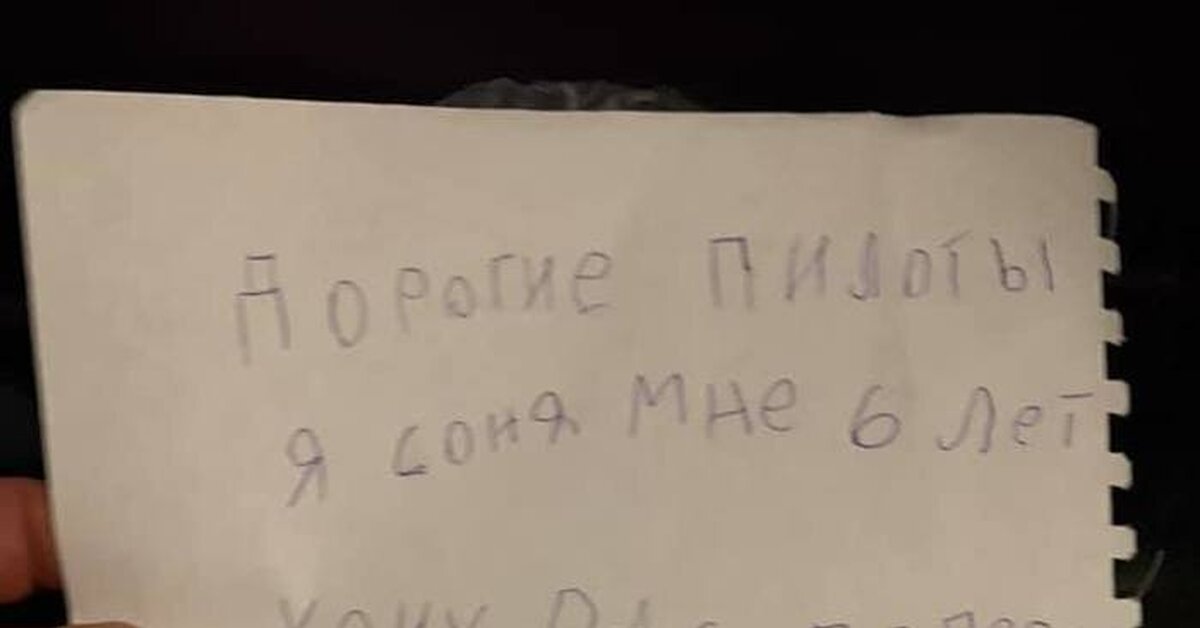 Дорогие пилоты
я соня мне 6 лет
хочу